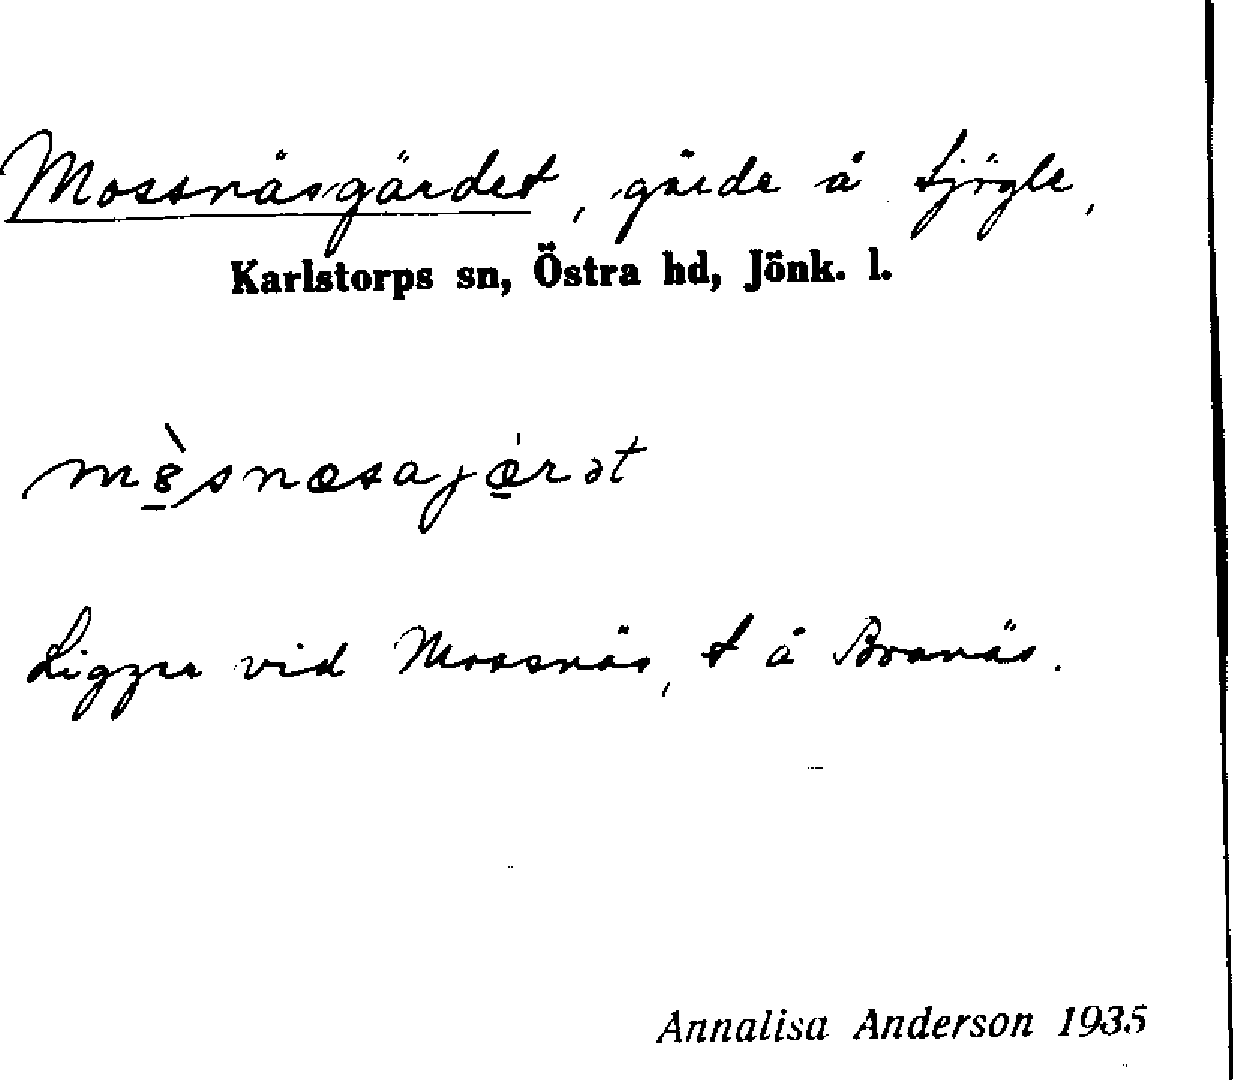 Mossnäsgärdet, gärde å Sjögle,
Karlstorps sn, Östra hd, Jönk. l.
mòsnæsajæ̱rət
Ligger vid Mossnäs, t å Bronäs.
Annalisa Anderson 1935